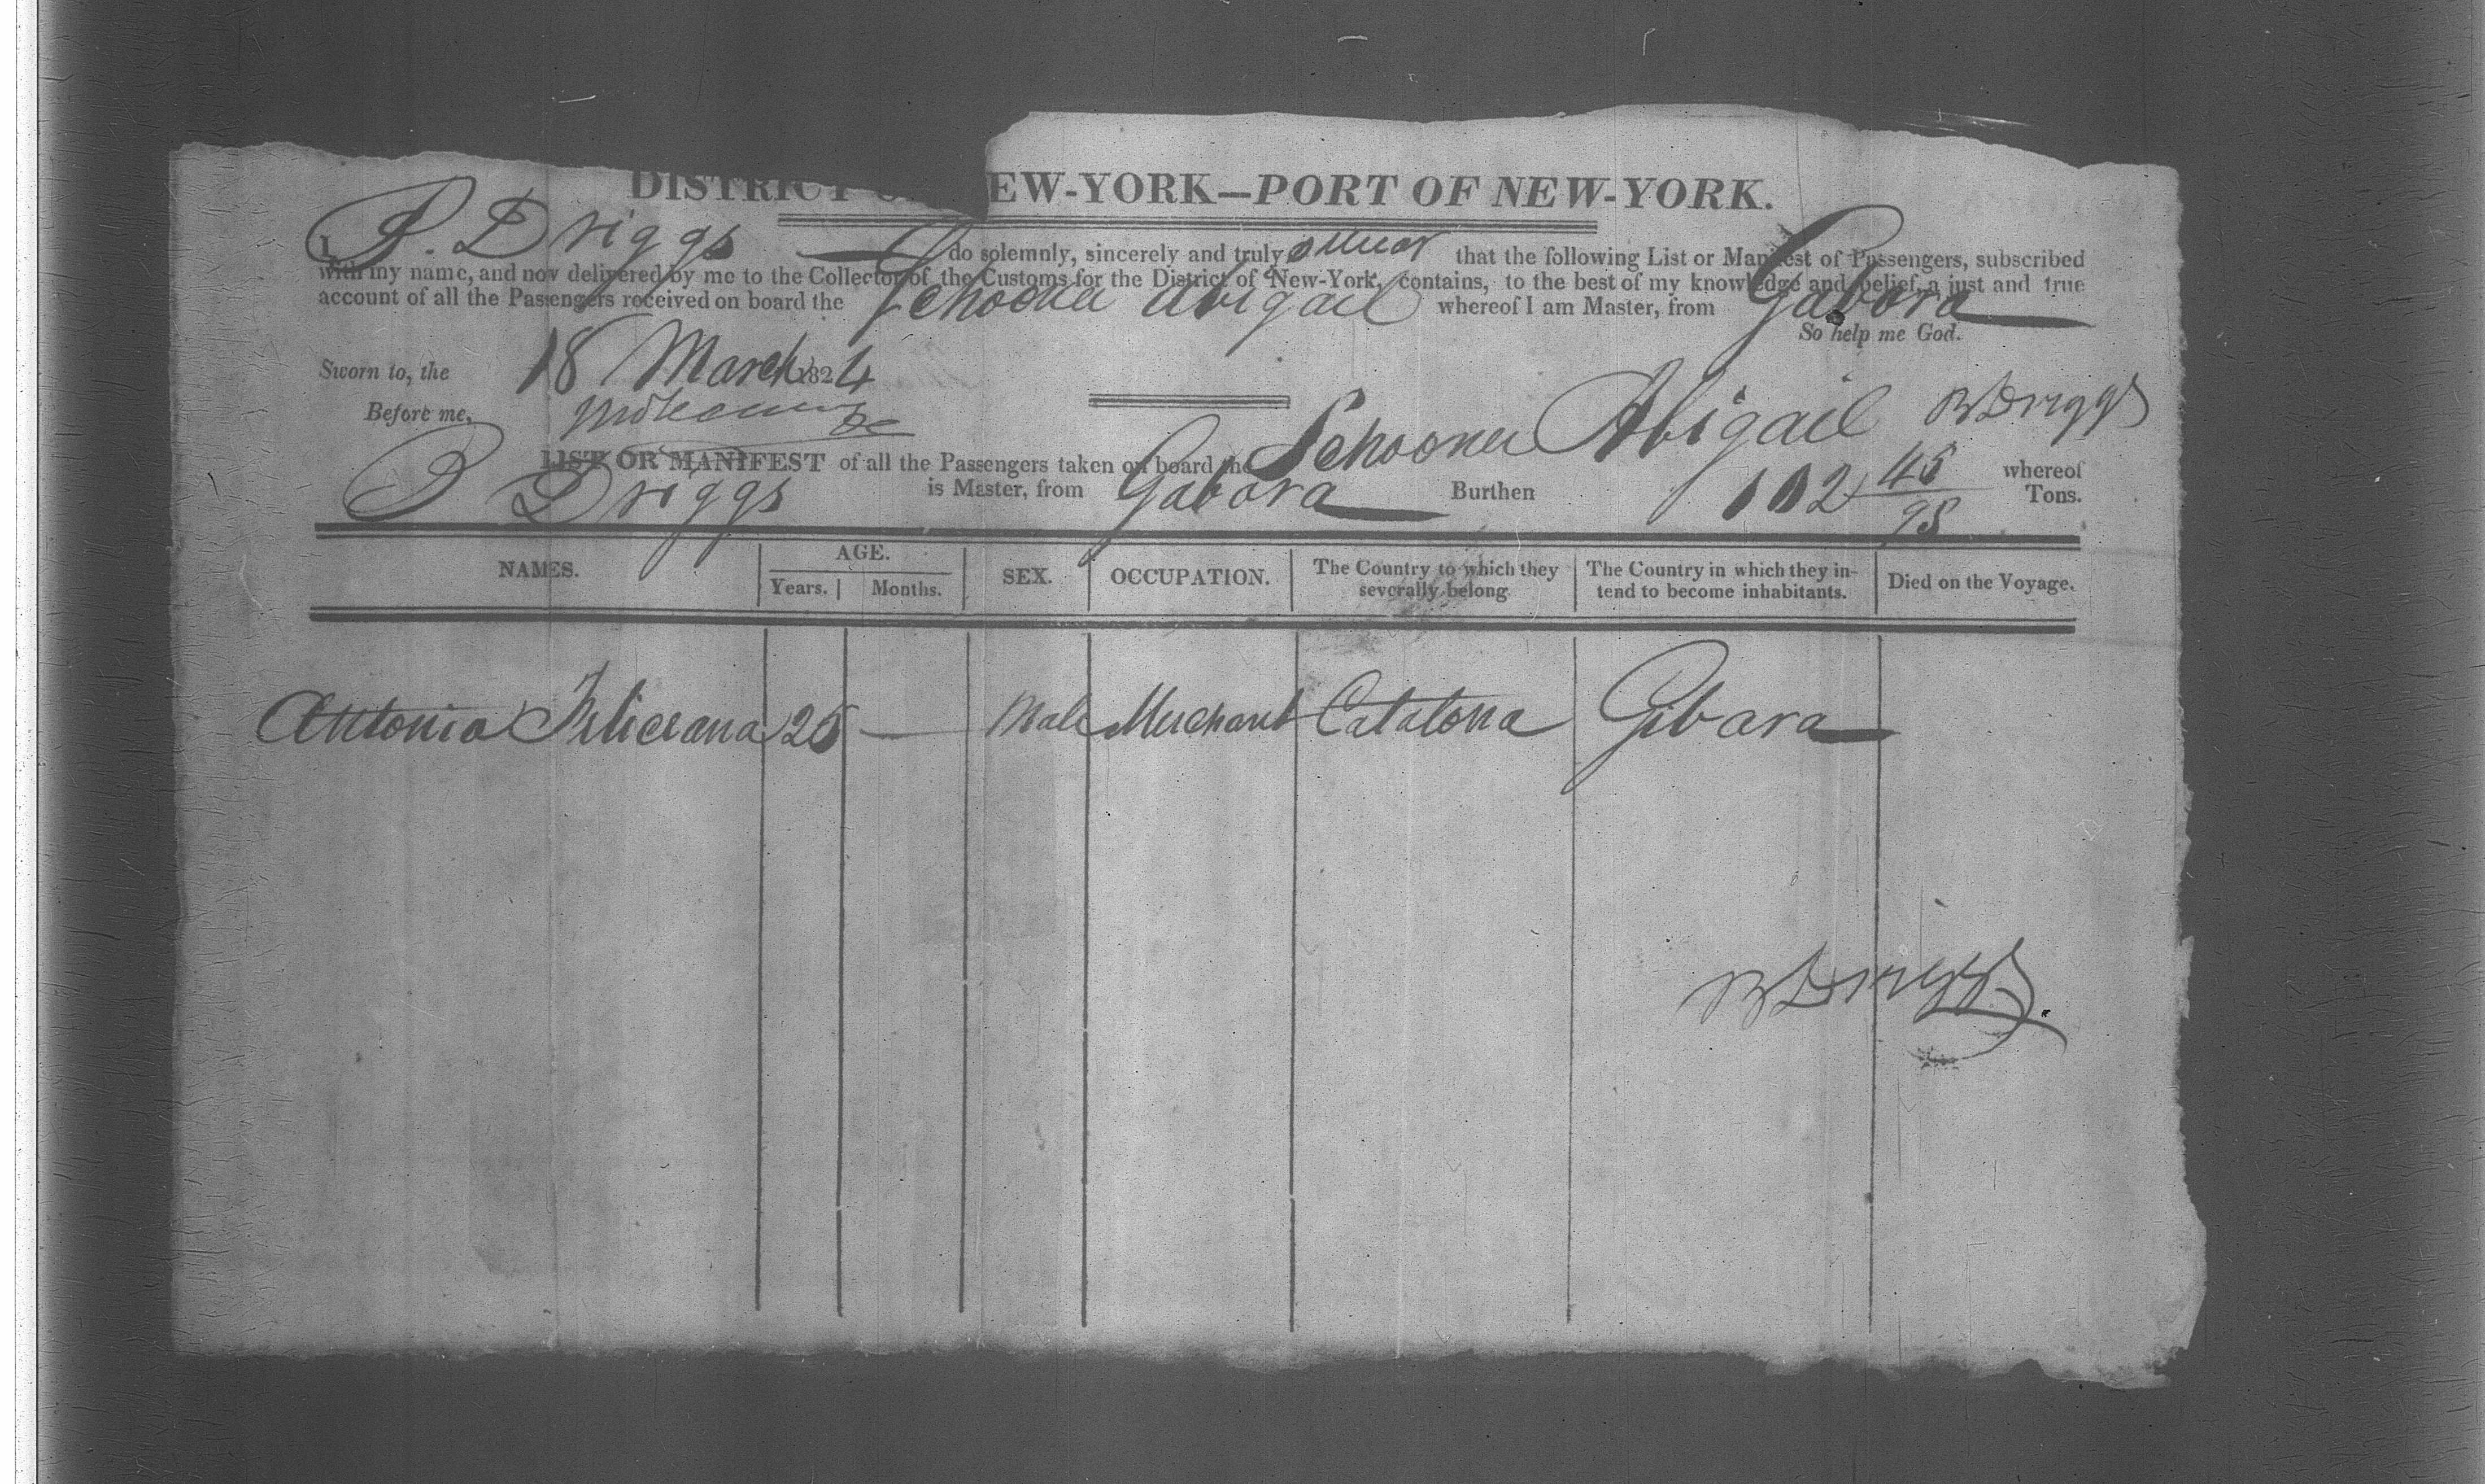 DISTRICT O EW-YORK—PORT OF NEW-YORK.
I, B. Driggs do solemnly, sincerely and truly swear that the following List or Manifest of Passengers, subscribed
with my name, and now delivered by me to the Collector of the Customs for the District of New-York, contains, to the best of my knowledge and belief, a just and true
account of all the Passengers received on board the Schooner Abigail whereof I am Master, from Gabora
So help me God.
Sworn to, the 18 March 1824
Before me,
B Driggs
LIST OR MANIFEST of all the Passengers taken on board the Schooner Abigail whereof
B Driggs is Master, from Gabora Burthen 102 45/95 Tons.
NAMES. AGE. SEX. OCCUPATION. The Country to which they severally belong. The Country in which they intend to become inhabitants. Died on the Voyage.
Years. Months.
Antonio Feliciana 25 — Male Merchant Catalona Gibara
B Driggs